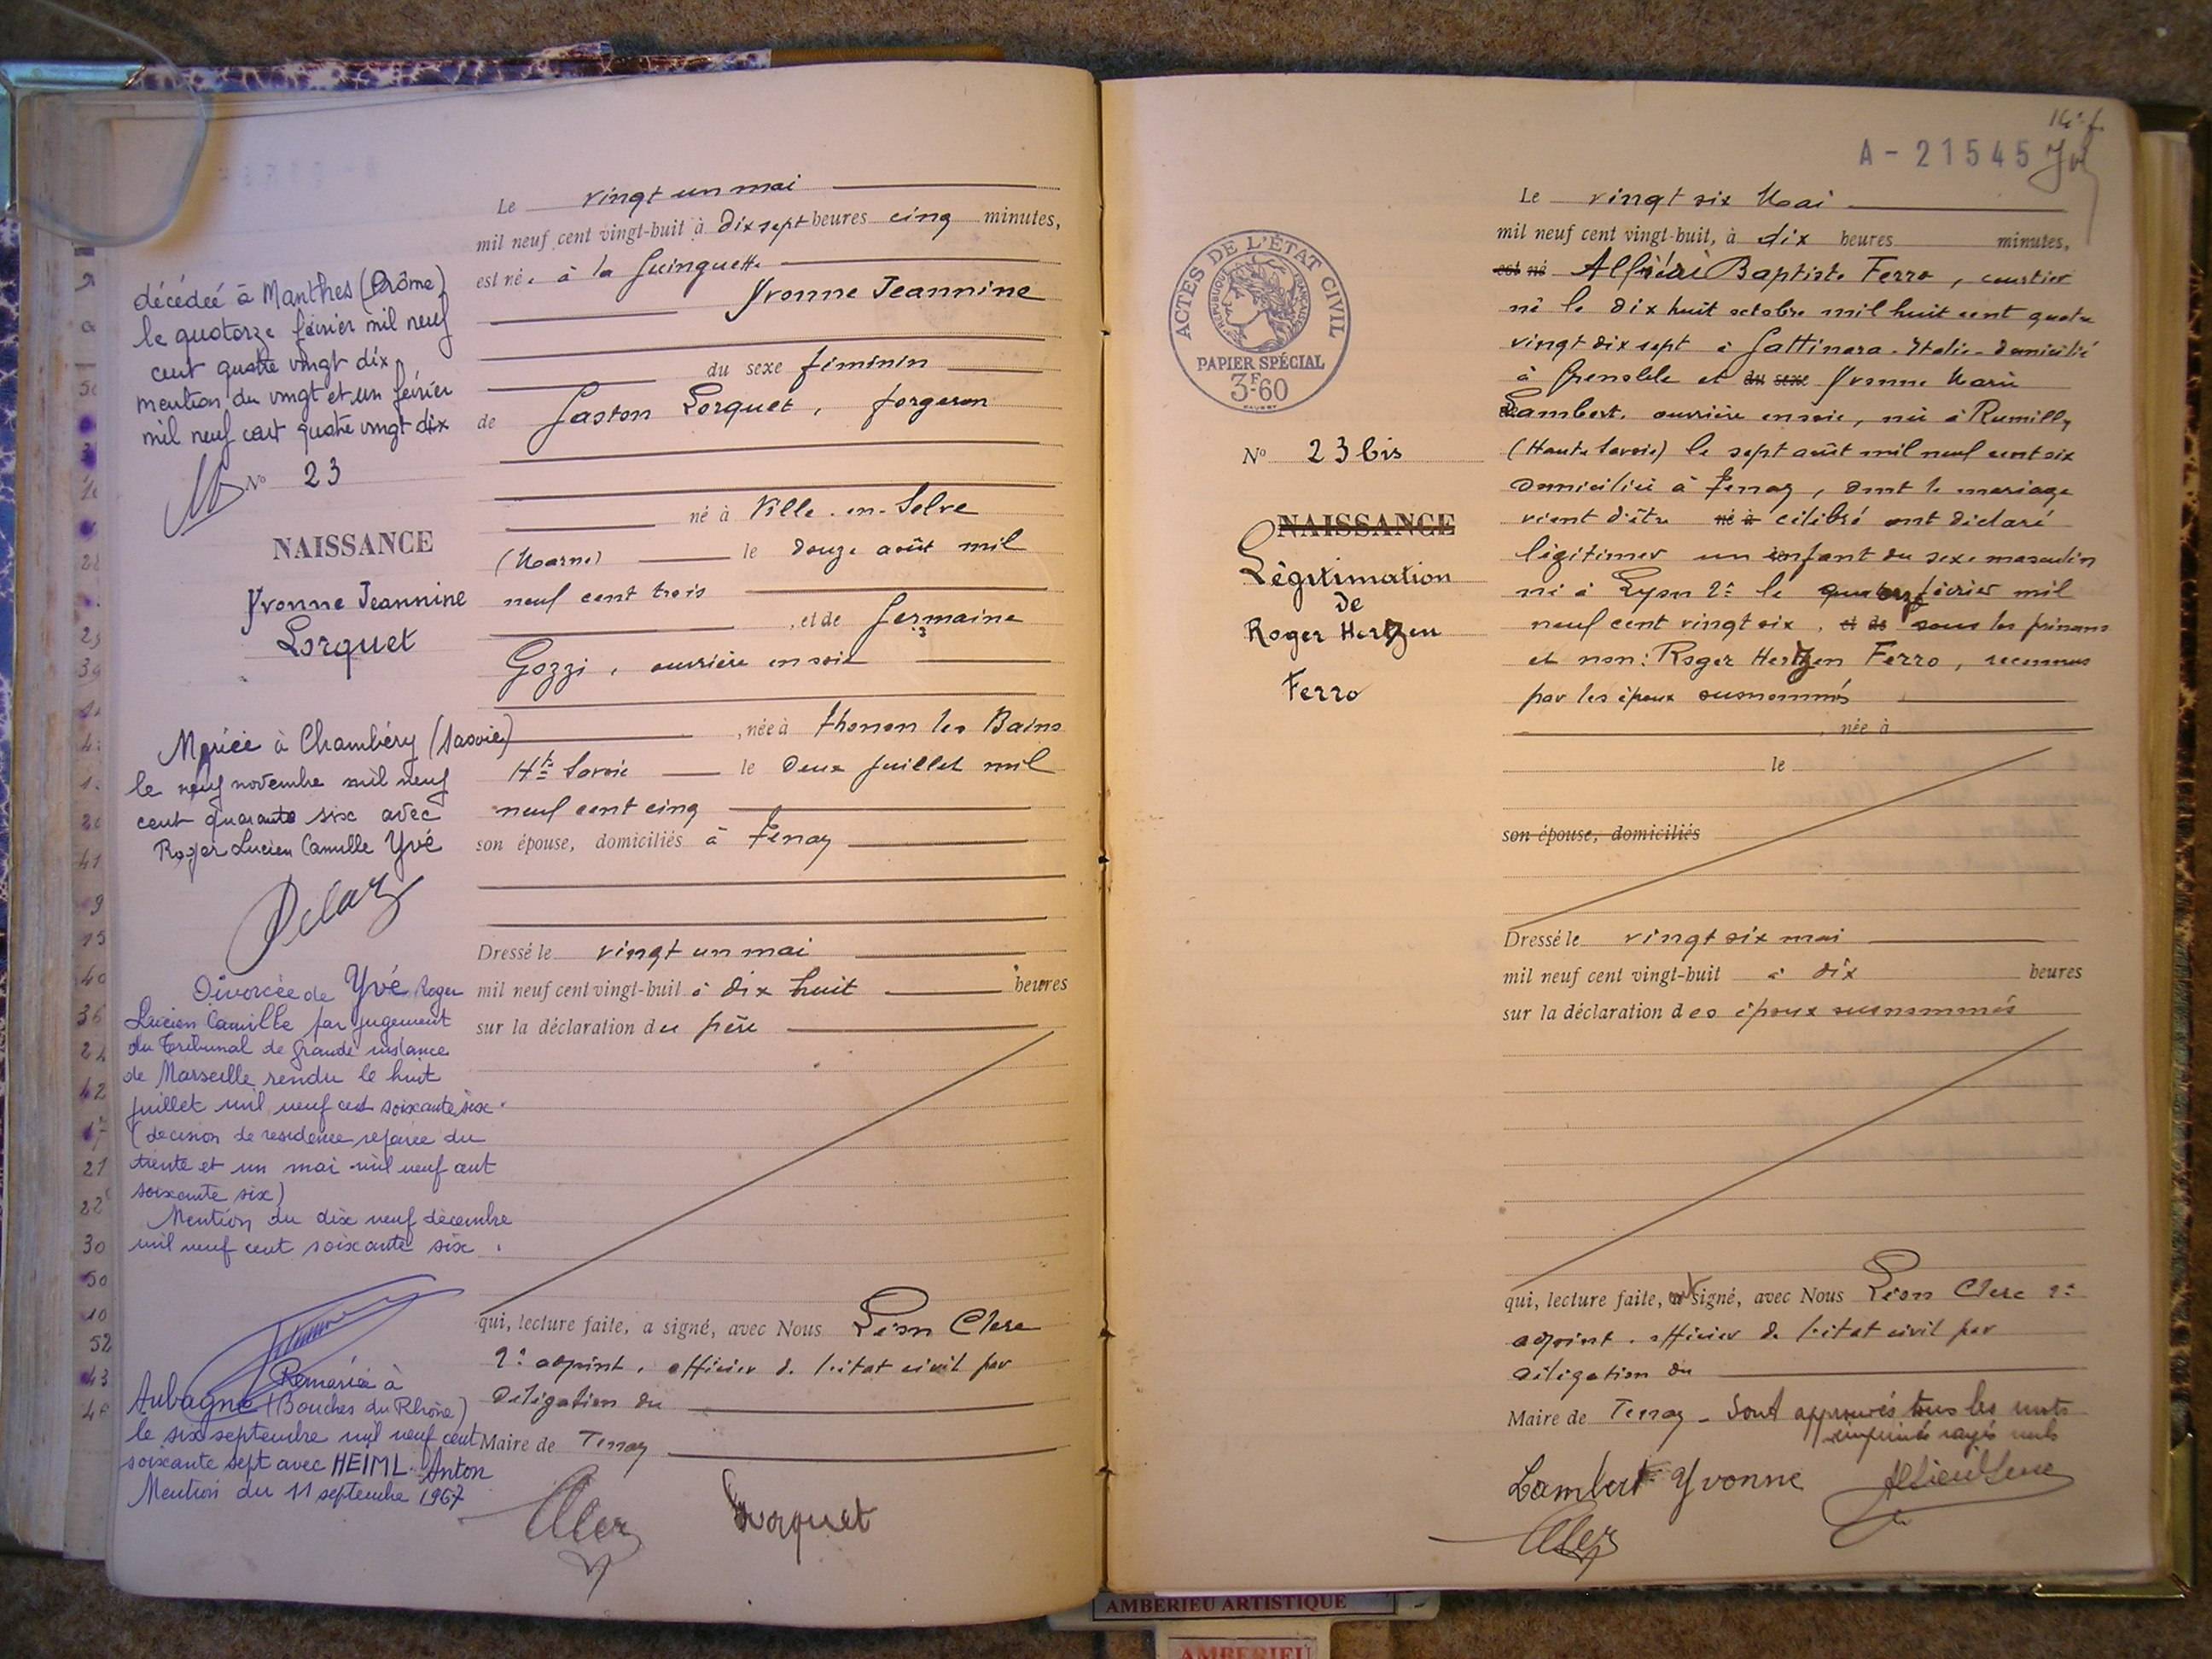 décédeé à Manthes (Drôme)
le quatorze février mil neuf
cent quatre vingt dix
mention du vingt et un février
mil neuf cent quatre vingt dix
No 23
NAISSANCE
Yvonne Jeannine
Lorquet
Mariée à Chambéry (Savoie)
le neuf novembre mil neuf
cent quarante six avec
Roger Lucien Camille Yvé
Divorcée de Yvé Roger
Lucien Camille par jugement
du Tribunal de grande instance
de Marseille rendu le huit
juillet mil neuf cent soixante six.
(décision de résidence séparée du
trente et un mai mil neuf cent
soixante six)
Mention du dix neuf décembre
mil neuf cent soixante six.
Remariée à
Aubagne (Bouches du Rhône)
le six septembre mil neuf cent
soixante sept avec HEIML Anton
Mention du 11 septembre 1967
Le vingt un mai
mil neuf cent vingt-huit à dix sept heures cinq minutes,
est née à la Guinguette
Yvonne Jeannine
du sexe féminin
de Gaston Lorquet, forgeron
né à Ville-en-Selve
(Marne) le douze août mil
neuf cent trois
, et de Germaine
Gozzi, ouvrière en soie
, née à Thonon les Bains
Hte Savoie le deux juillet mil
neuf cent cinq
son épouse, domiciliés à Tenay
Dressé le vingt un mai
mil neuf cent vingt-huit à dix huit heures
sur la déclaration du père
qui, lecture faite, a signé, avec Nous Léon Clerc
2e adjoint, officier de l'état civil par
délégation du
Maire de Tenay
Clerc
Lorquet
A-21545
ACTES DE L'ÉTAT CIVIL
RÉPUBLIQUE FRANÇAISE
PAPIER SPÉCIAL
3F60
No 23 bis
NAISSANCE
Légitimation
de
Roger Hertzen
Ferro
Le vingt six Mai
mil neuf cent vingt-huit, à dix heures minutes,
est né Alfiéri Baptiste Ferro, courtier
né le dix huit octobre mil huit cent quatre
vingt dix sept à Gattinara - Italie - domicilié
à Grenoble et du sexe Yvonne Marie
Lambert, ouvrière en soie, née à Rumilly
(Haute Savoie) le sept août mil neuf cent six
domiciliée à Tenay, dont le mariage
vient d'être né à célébré ont déclaré
légitimer un enfant du sexe masculin
né à Lyon 2e le quatorze février mil
neuf cent vingt six, et de sous les prénoms
et nom: Roger Hertzen Ferro, reconnu
par les époux susnommés
, née à
le
son épouse, domiciliés
Dressé le vingt six mai
mil neuf cent vingt-huit à dix heures
sur la déclaration des époux susnommés
qui, lecture faite, ont signé, avec Nous Léon Clerc 2e
adjoint, officier de l'état civil par
délégation du
Maire de Tenay - Sont approuvés tous les mots
imprimés rayés nuls
Lambert Yvonne
Clerc
AMBERIEU ARTISTIQUE
AMBERIEU